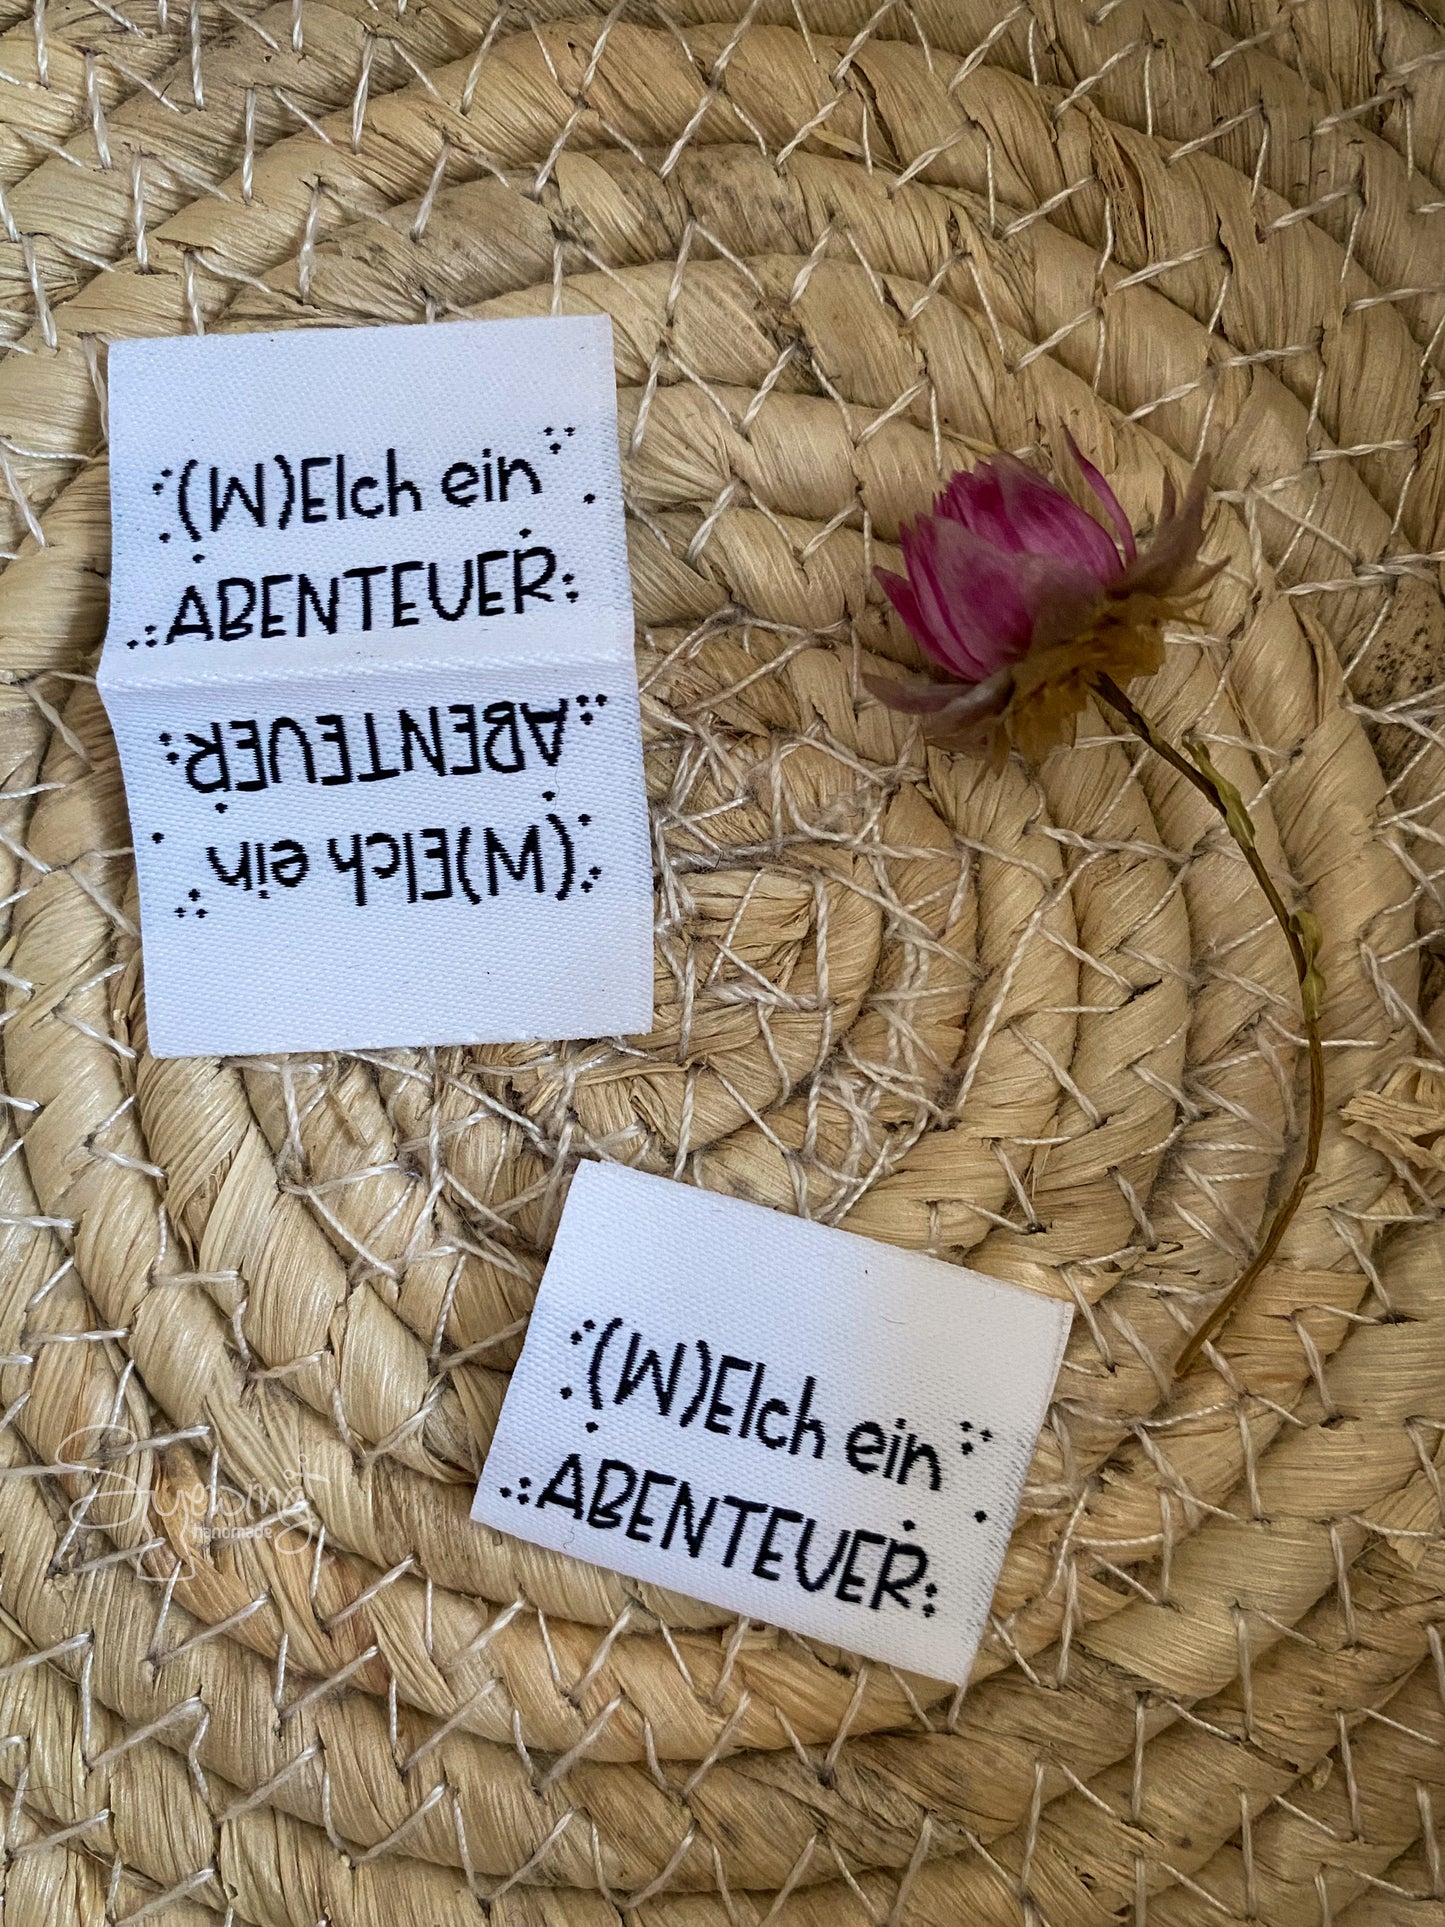 (W)Elch ein
ABENTEUER
ABENTEUER
(W)Elch ein
(W)Elch ein
ABENTEUER
Suebing
handmade